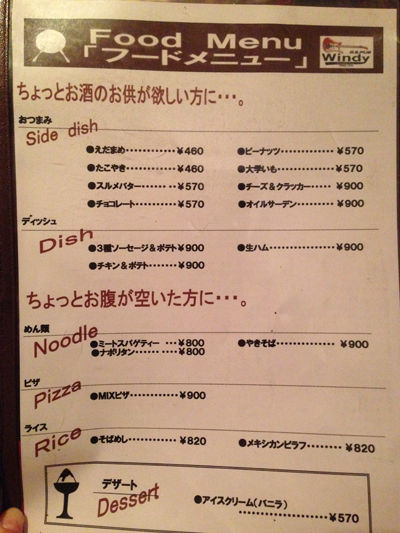 Food Menu
「フードメニュー」
Windy
ちょっとお酒のお供が欲しい方に・・・。
おつまみ
Side dish
●えだまめ…………¥460 ●ピーナッツ…………¥570
●たこやき…………¥460 ●大学いも…………¥570
●スルメバター………¥570 ●チーズ＆クラッカー……¥900
●チョコレート………¥570 ●オイルサーデン………¥900
ディッシュ
Dish
●３種ソーセージ＆ポテト¥900 ●生ハム……………¥900
●チキン＆ポテト………¥900
ちょっとお腹が空いた方に・・・。
めん類
Noodle
●ミートスパゲティー…¥800 ●やきそば……………¥900
●ナポリタン…………¥800
ピザ
Pizza
●MIXピザ……………¥900
ライス
Rice
●そばめし……………¥820 ●メキシカンピラフ………¥820
デザート
Dessert
●アイスクリーム（バニラ）
……………………¥570